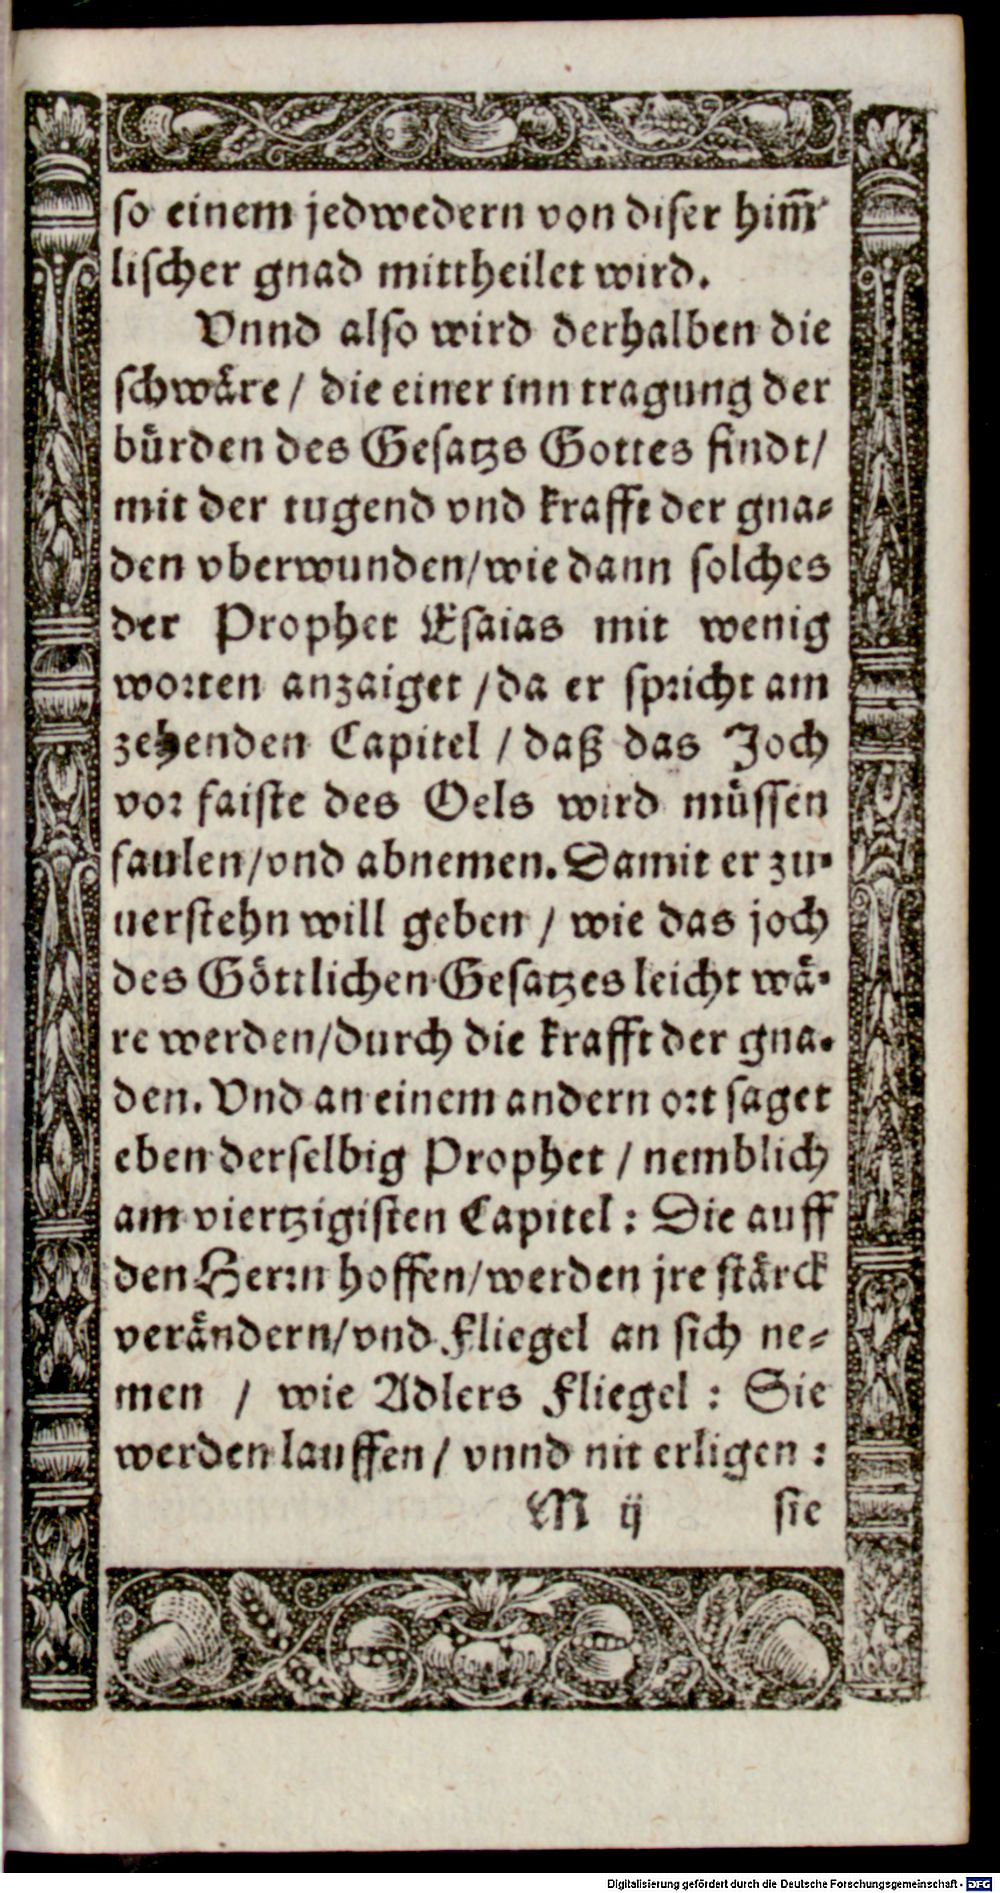 so einem jedwedern von diser him̃
lischer gnad mittheilet wird.
Vnnd also wird derhalben die
schwäre / die einer inn tragung der
bürden des Gesatzs Gottes findt/
mit der tugend vnd krafft der gna⸗
den vberwunden/wie dann solches
der Prophet Esaias mit wenig
worten anzaiget / da er spricht am
zehenden Capitel / daß das Joch
vor faiste des Oels wird müssen
faulen/vnd abnemen. Damit er zu⸗
uerstehn will geben / wie das joch
des Göttlichen Gesatzes leicht wä⸗
re werden/durch die krafft der gna⸗
den. Vnd an einem andern ort saget
eben derselbig Prophet / nemblich
am viertzigisten Capitel : Die auff
den Herrn hoffen/werden jre stärck
verändern/vnd Fliegel an sich ne⸗
men / wie Adlers Fliegel : Sie
werden lauffen / vnnd nit erligen :
M ij sie
Digitalisierung gefördert durch die Deutsche Forschungsgemeinschaft - DFG